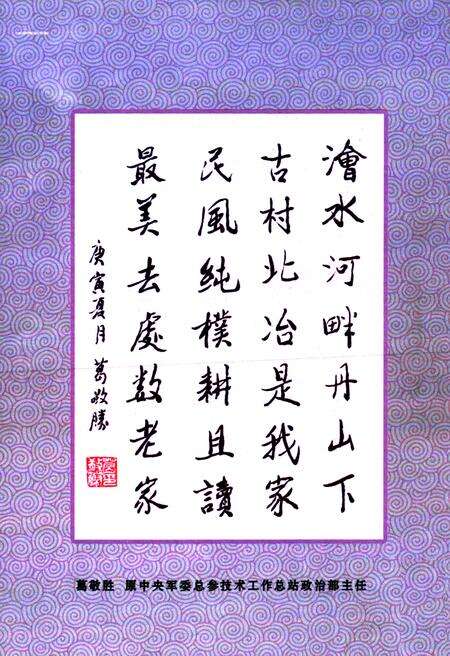 澮水河畔丹山下
古村北冶是我家
民風純樸耕且讀
最美去處数老家
庚寅夏月 葛敬勝
葛敬胜 原中央军委总参技术工作总站政治部主任